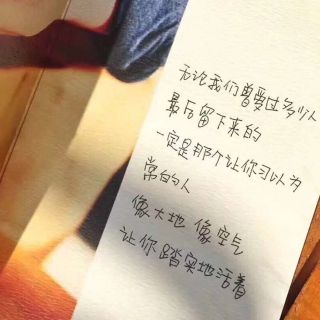 无论我们曾爱过多少人
最后留下来的
一定是那个让你习以为
常的人
像大地 像空气
让你踏实地活着